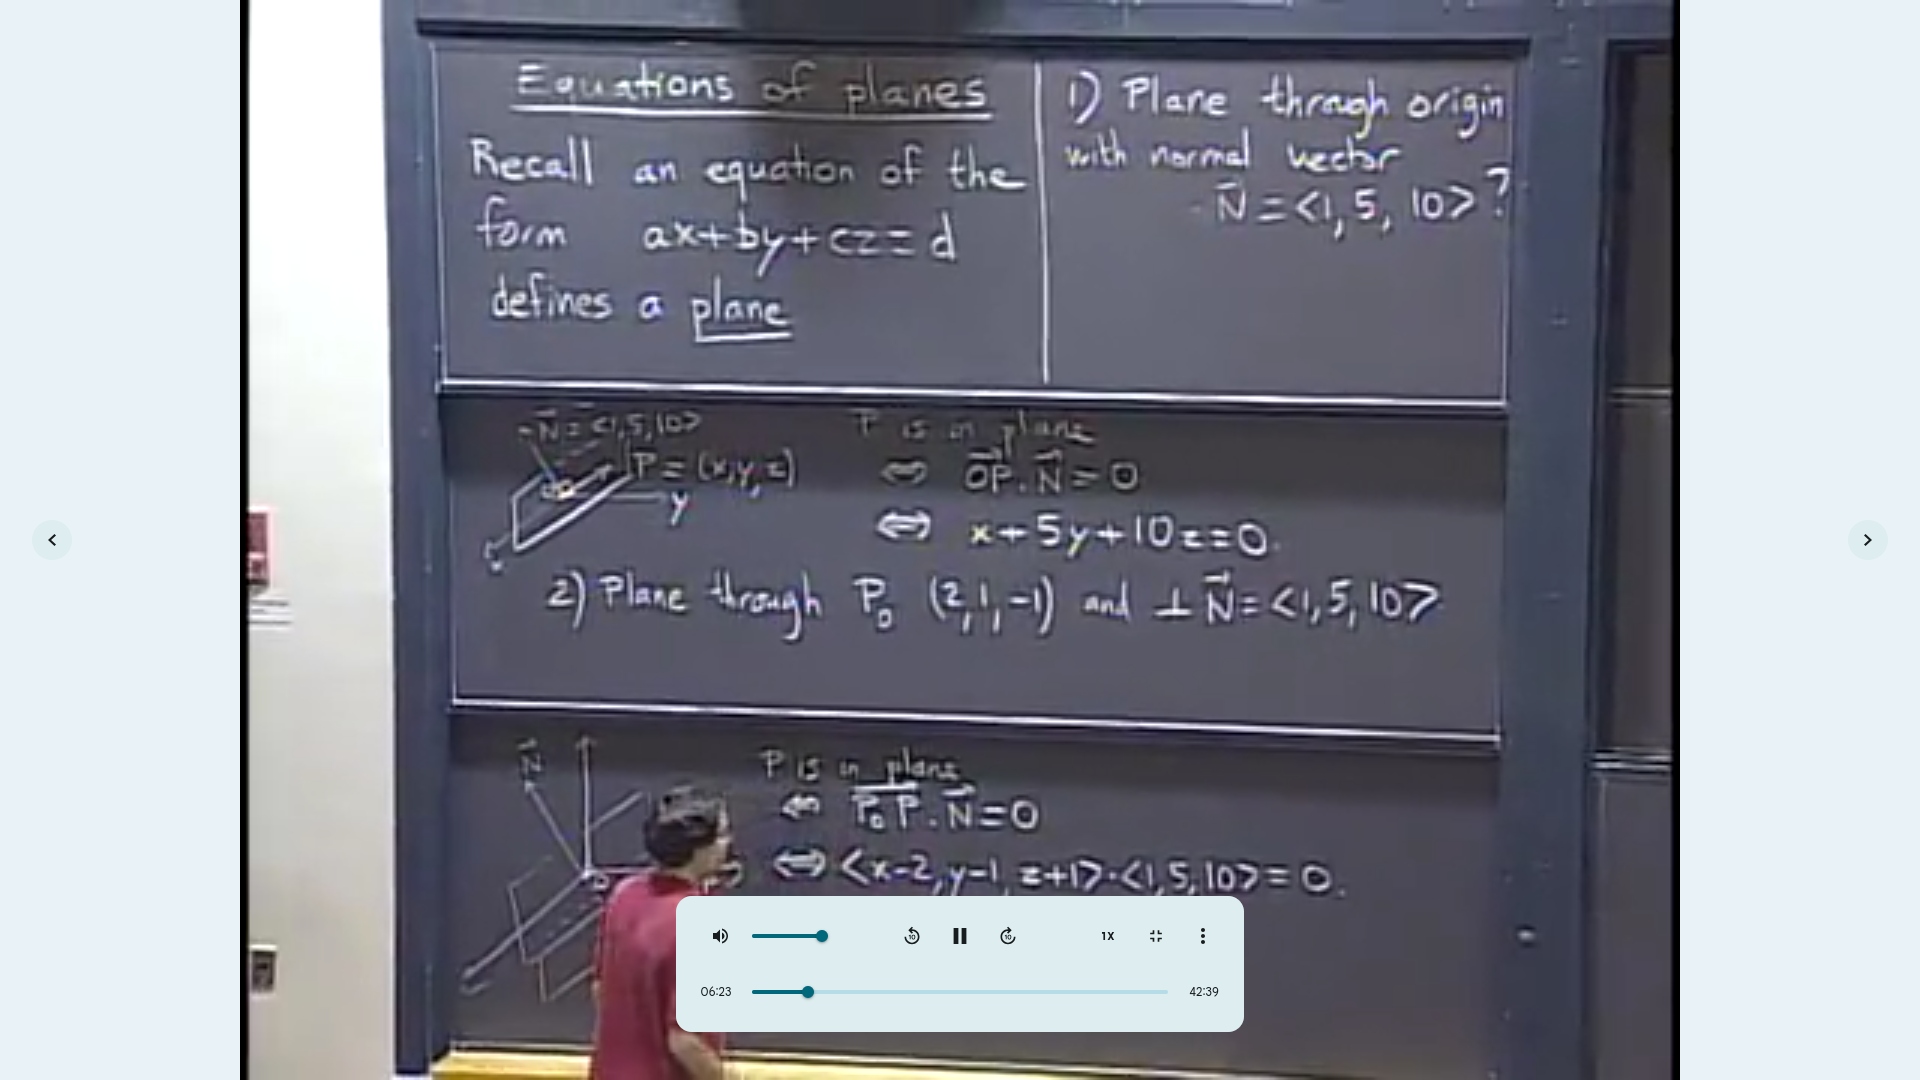 Equations of planes
Recall an equation of the
form ax+by+cz=d
defines a plane
1) Plane through origin
with normal vector
N⃗=<1,5,10>?
N⃗=<1,5,10>
P=(x,y,z)
y
P is in plane
⇔ OP⃗.N⃗=0
⇔ x+5y+10z=0.
2) Plane through P₀ (2,1,-1) and ⊥N⃗=<1,5,10>
N⃗
P is in plane
⇔ P₀P⃗.N⃗=0
⇔ <x-2,y-1,z+1>·<1,5,10>=0.
10
10
1X
06:23
42:39